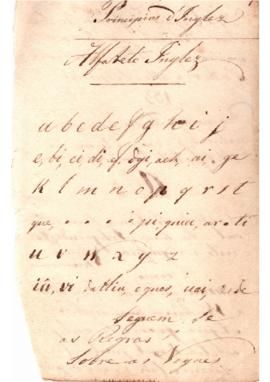 Principios d'Inglez
Alfabeto Inglez
a b c d e f g h i j
e, bi, ci, di, ef, dgi, ach, ai, ge
k l m n o p q r s t
que, e pi, quiu, ar, ti
u v w x y z
iu, vi eques, uai,
Seguem se
as Regras
Sobre as Vogaes